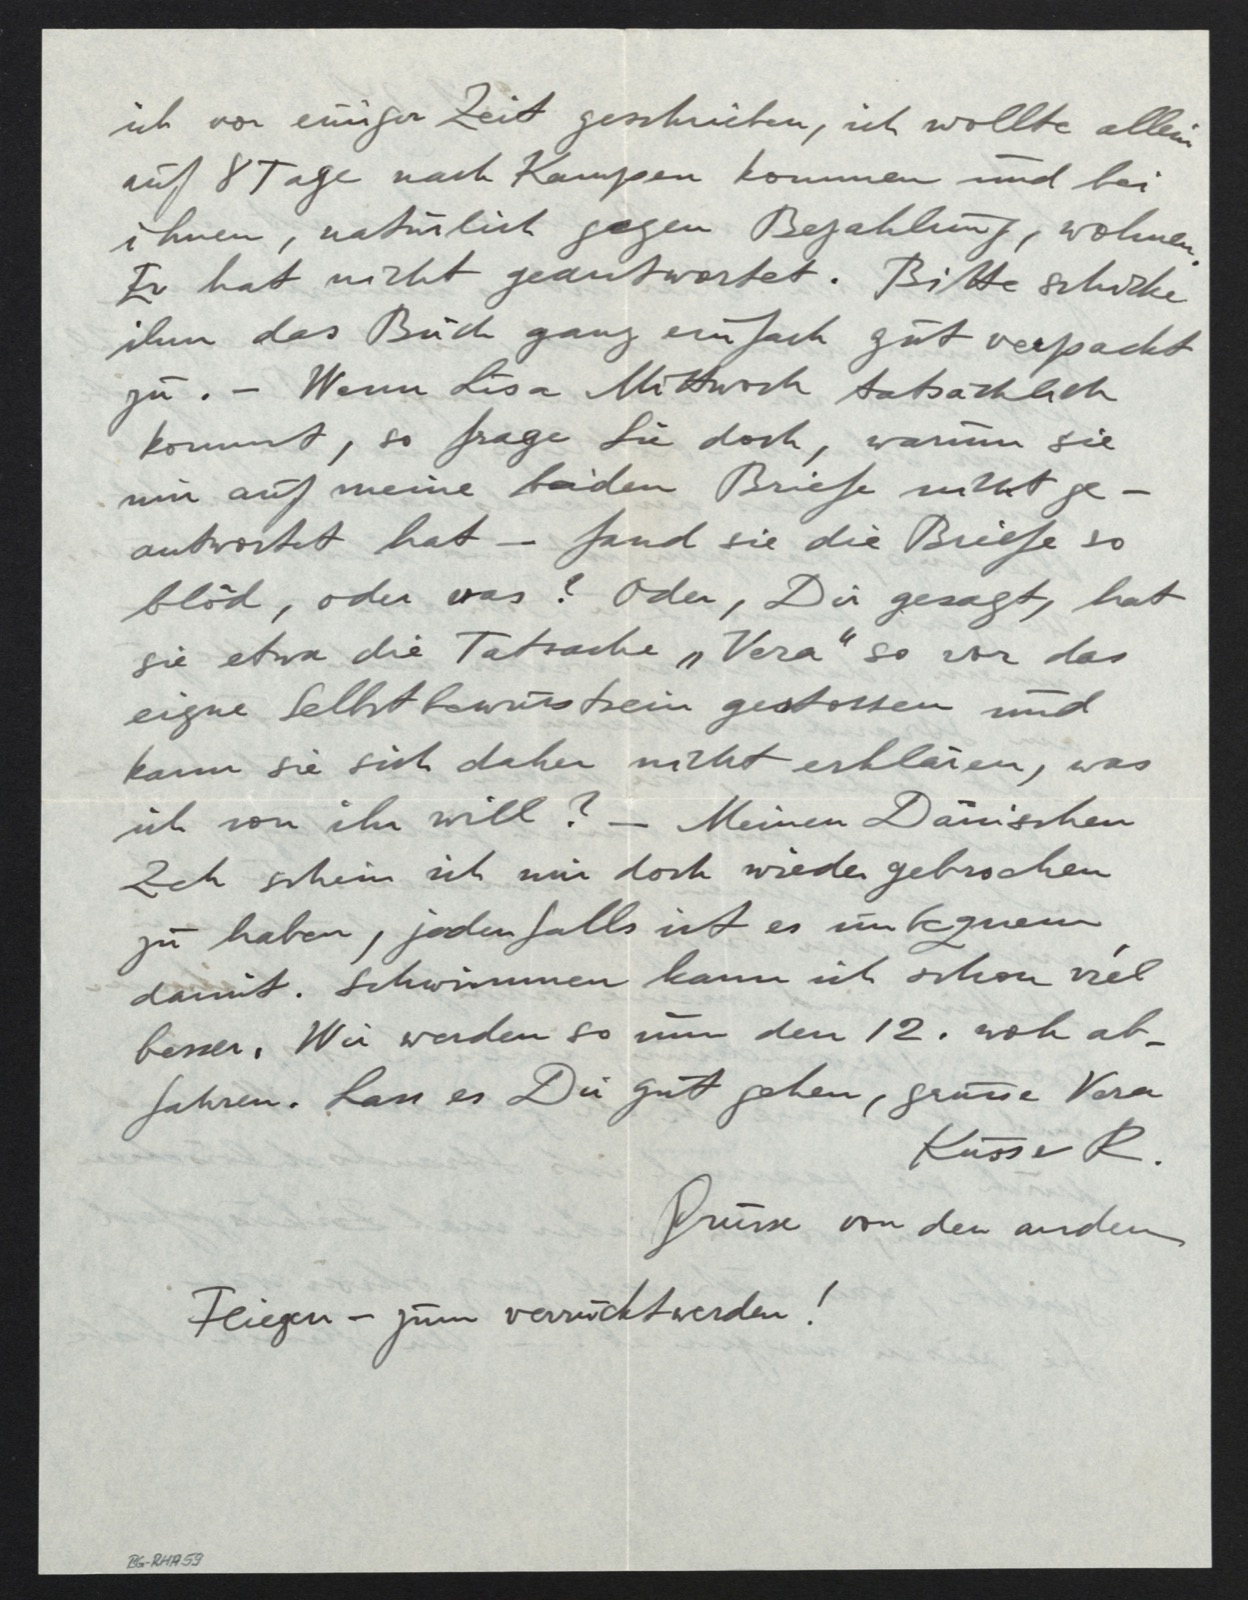 ich vor einiger Zeit geschrieben, ich wollte allein
auf 8 Tage nach Kampen kommen und bei
ihnen, natürlich gegen Bezahlung, wohnen.
Er hat nicht geantwortet. Bitte schicke
ihm das Buch ganz einfach gut verpackt
zu. - Wenn Lisa Mittwoch tatsächlich
kommt, so frage Sie doch, warum sie
mir auf meine beiden Briefe nicht ge-
antwortet hat - fand sie die Briefe so
blöd, oder was? Oder, Dir gesagt, hat
sie etwa die Tatsache „Vera“ so vor das
eigne Selbstbewusstsein gestossen und
kann sie sich daher nicht erklären, was
ich von ihr will? - Meinen Dänischen
Zeh schein ich mir doch wieder gebrochen
zu haben, jedenfalls ist es unbequem
damit. Schwimmen kann ich schon viel
besser. Wir werden so um den 12. woh ab-
fahren. Lass es Dir gut gehen, grüsse Vera
Küsse R.
Grüsse von den andern
Fliegen - zum verrücktwerden!
BG-RHA 59